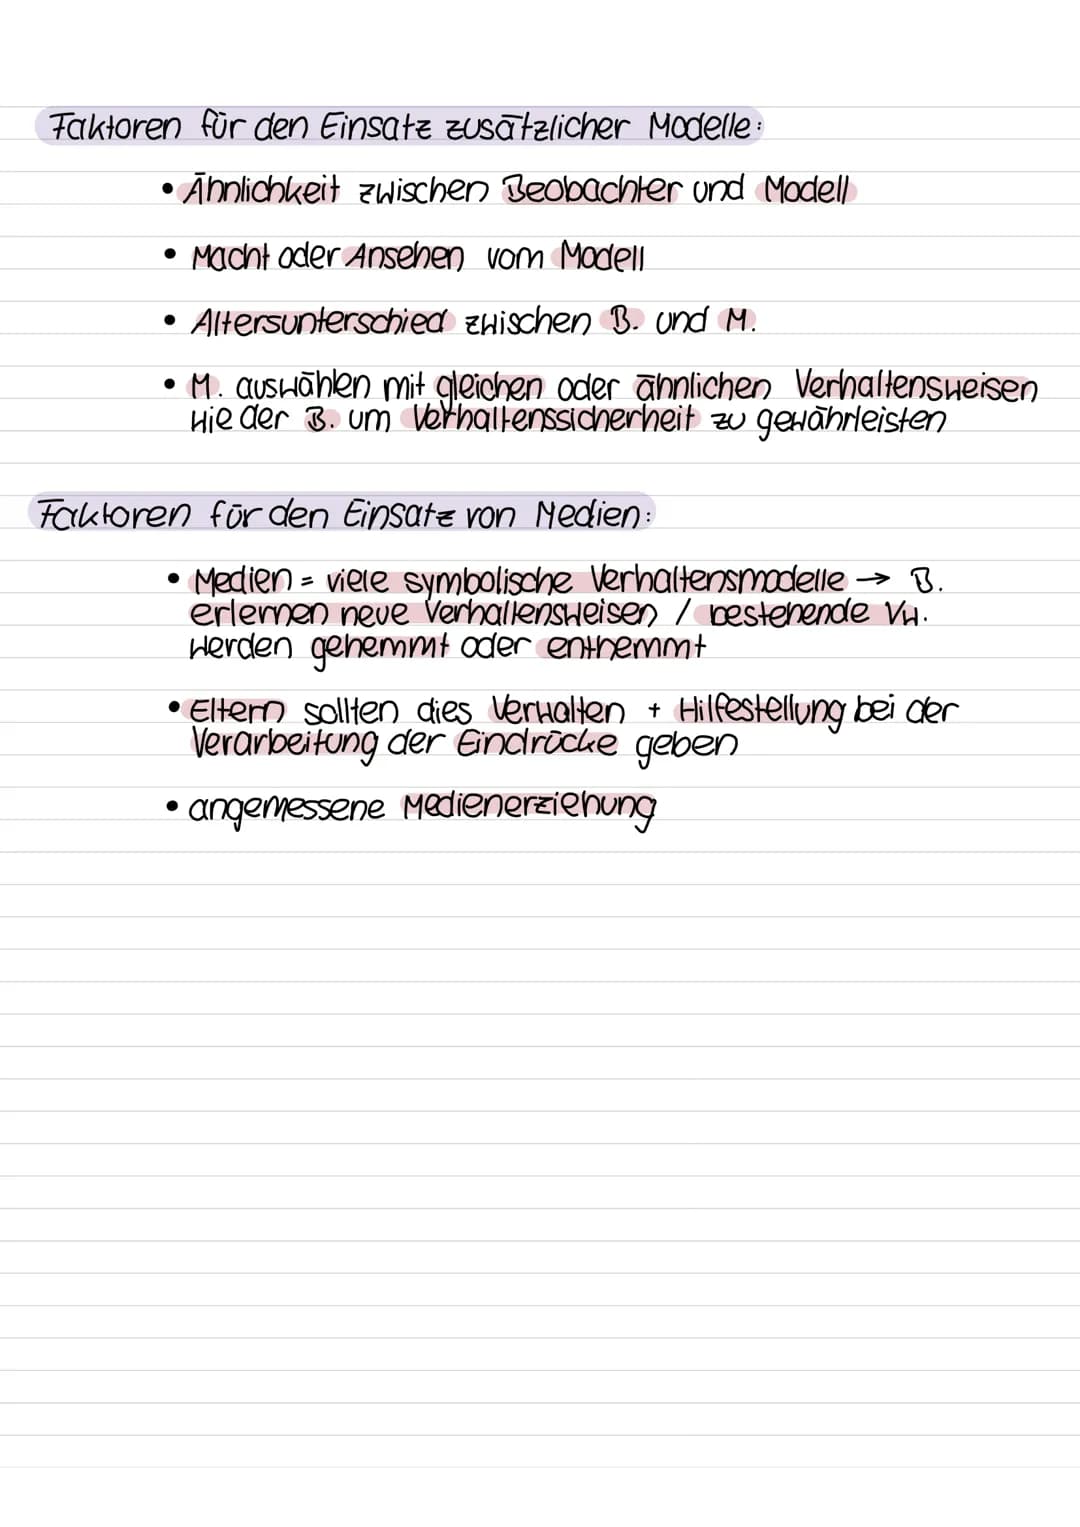 Faktoren für den Einsatz zusätzlicher Modelle:
• Ähnlichkeit zwischen Beobachter und Modell
• Macht oder Ansehen vom Modell
• Altersunterschied zwischen B. und M.
• M. auswählen mit gleichen oder ähnlichen Verhaltensweisen
wie der B. um Verhaltenssicherheit zu gewährleisten
Faktoren für den Einsatz von Medien:
• Medien = viele symbolische Verhaltensmodelle → B.
erlernen neue Verhaltensweisen / bestehende Vw.
werden gehemmt oder enthemmt
• Eltern sollten dies Verhalten + Hilfestellung bei der
Verarbeitung der Eindrücke geben
• angemessene Medienerziehung